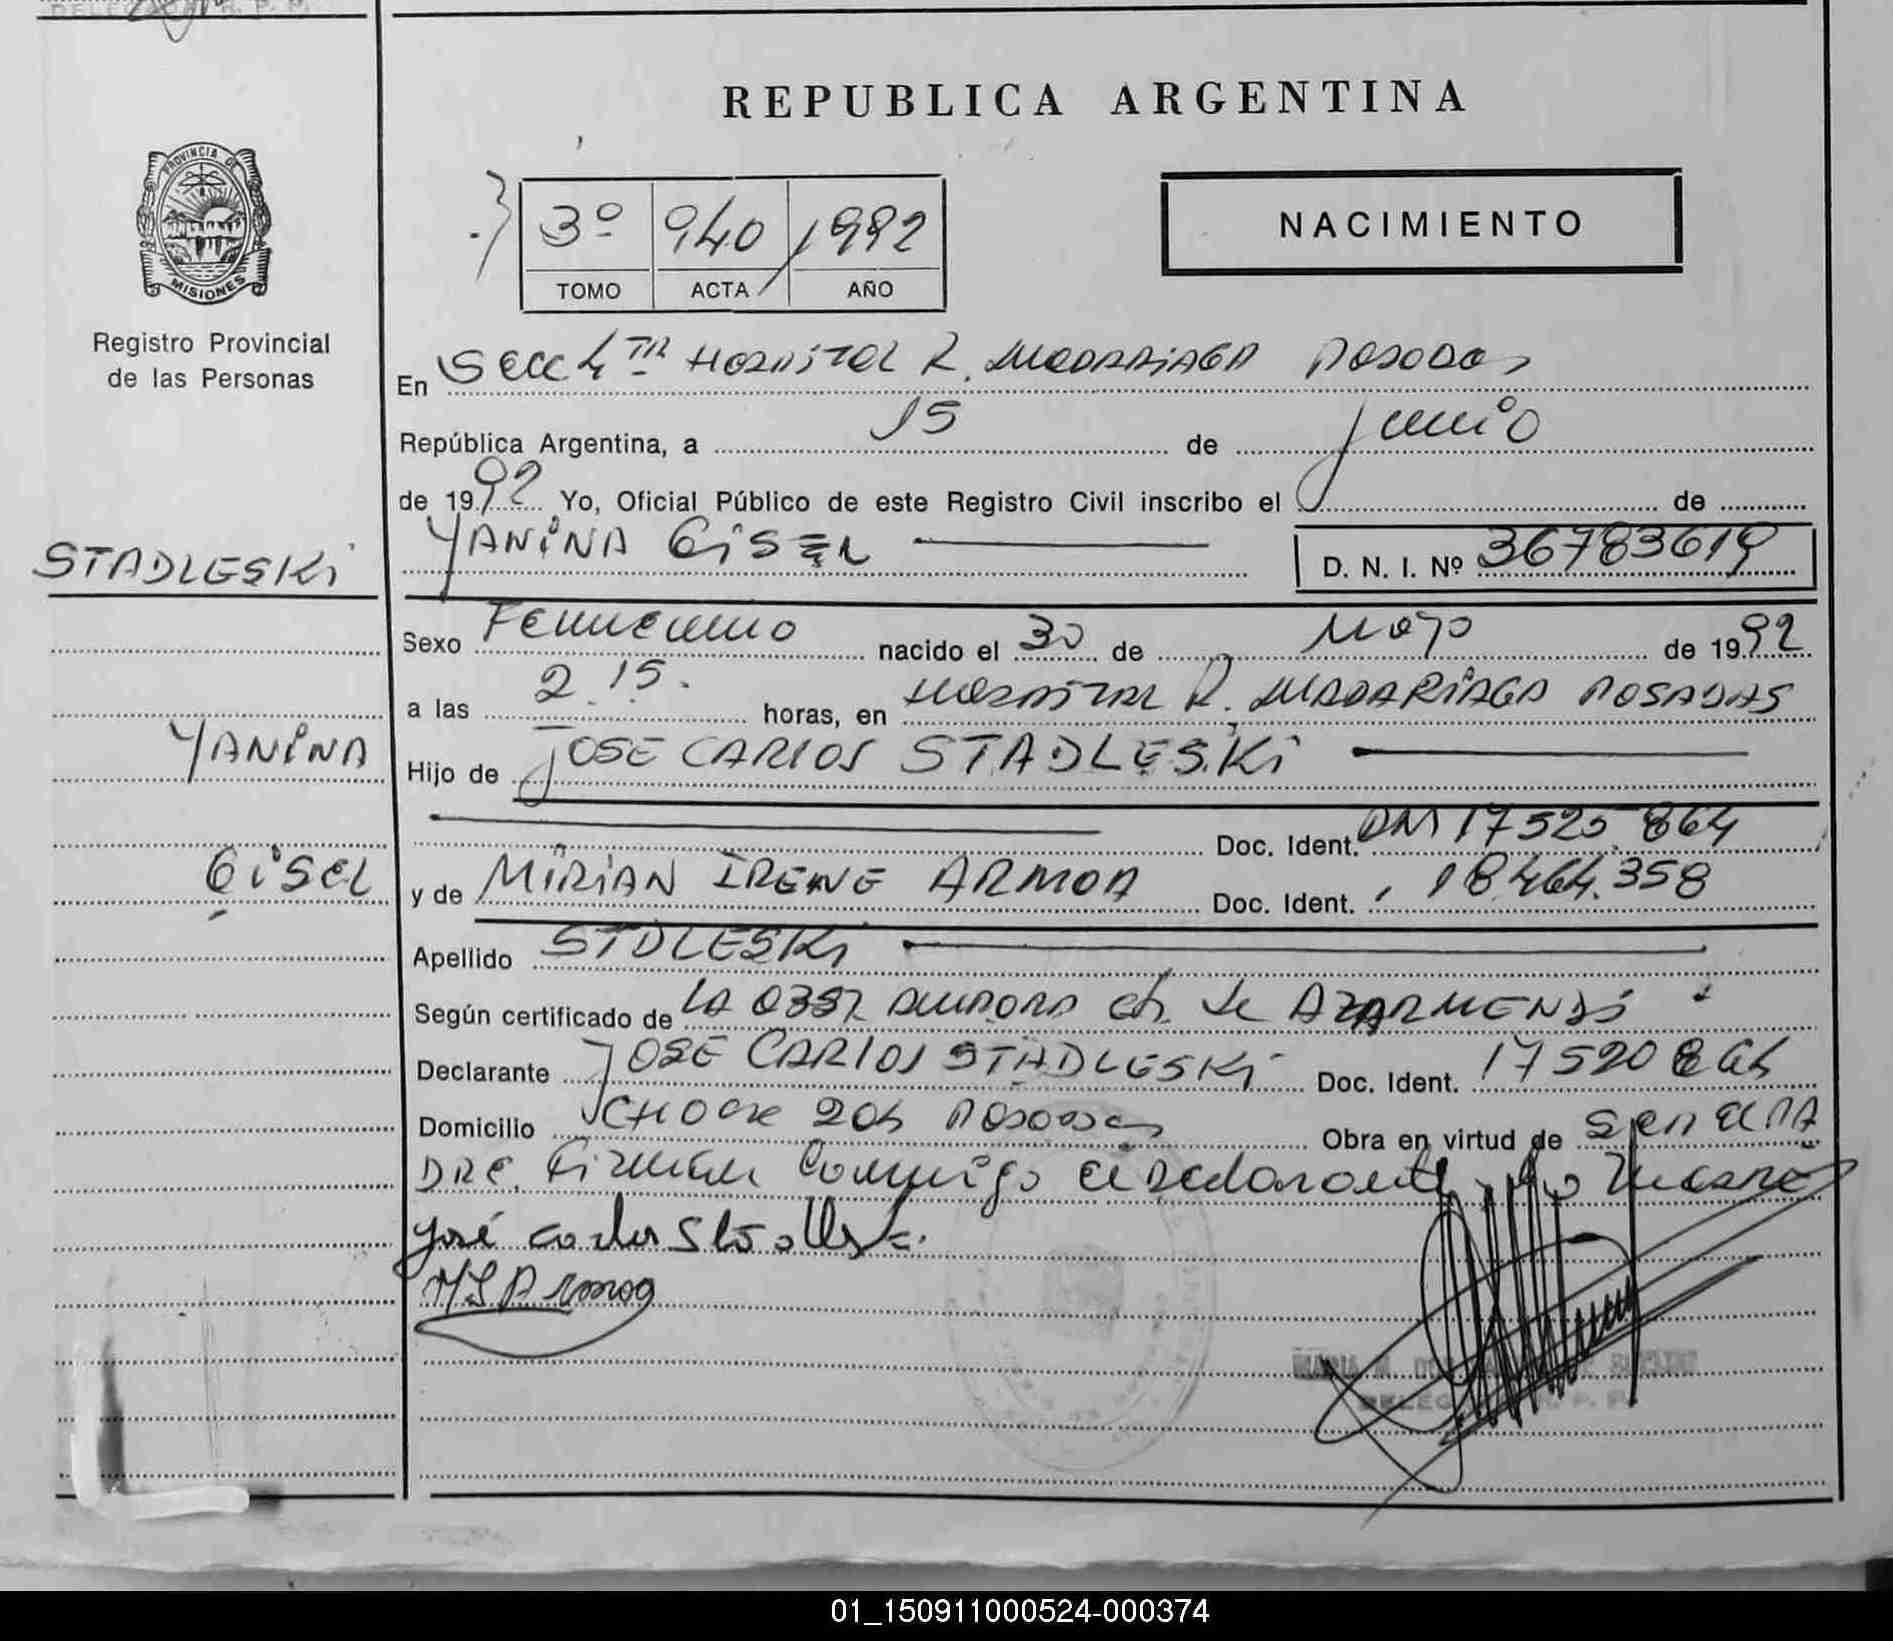 REPUBLICA ARGENTINA
PROVINCIA DE
MISIONES
Registro Provincial
de las Personas
3º 940 1992
TOMO ACTA AÑO
NACIMIENTO
En Secc 4ta HOSPITAL R. MADARIAGA POSADAS
República Argentina, a 15 de junio
de 1992 Yo, Oficial Público de este Registro Civil inscribo el de
YANINA GISEL D. N. I. Nº 36783619
STADLESKi
Sexo Femenino nacido el 30 de Mayo de 1992
a las 2.15. horas, en HOSPITAL R. MADARIAGA POSADAS
YANINA
Hijo de JOSE CARLOS STADLESKi
Doc. Ident. DNI 17525.864
GiSEL
y de MIRIAN IRENE ARMOA Doc. Ident. 18.464.358
Apellido STDLESKi
Según certificado de LA OBST de AZARMENDi
Declarante JOSE CARLOS STADLESKi Doc. Ident. 17520864
Domicilio 204 POSADAS Obra en virtud de ser EL PA
DRE. Firman Conmigo el declarante y la Madre
José Carlos
Armoa
DELEG R. P. P.
01_150911000524-000374